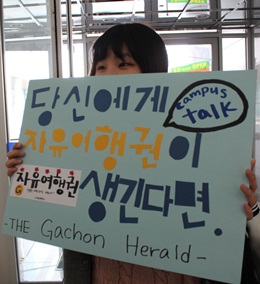 당신에게
campus
talk
자유여행권이
자유여행권
생긴다면.
-THE Gachon Herald-